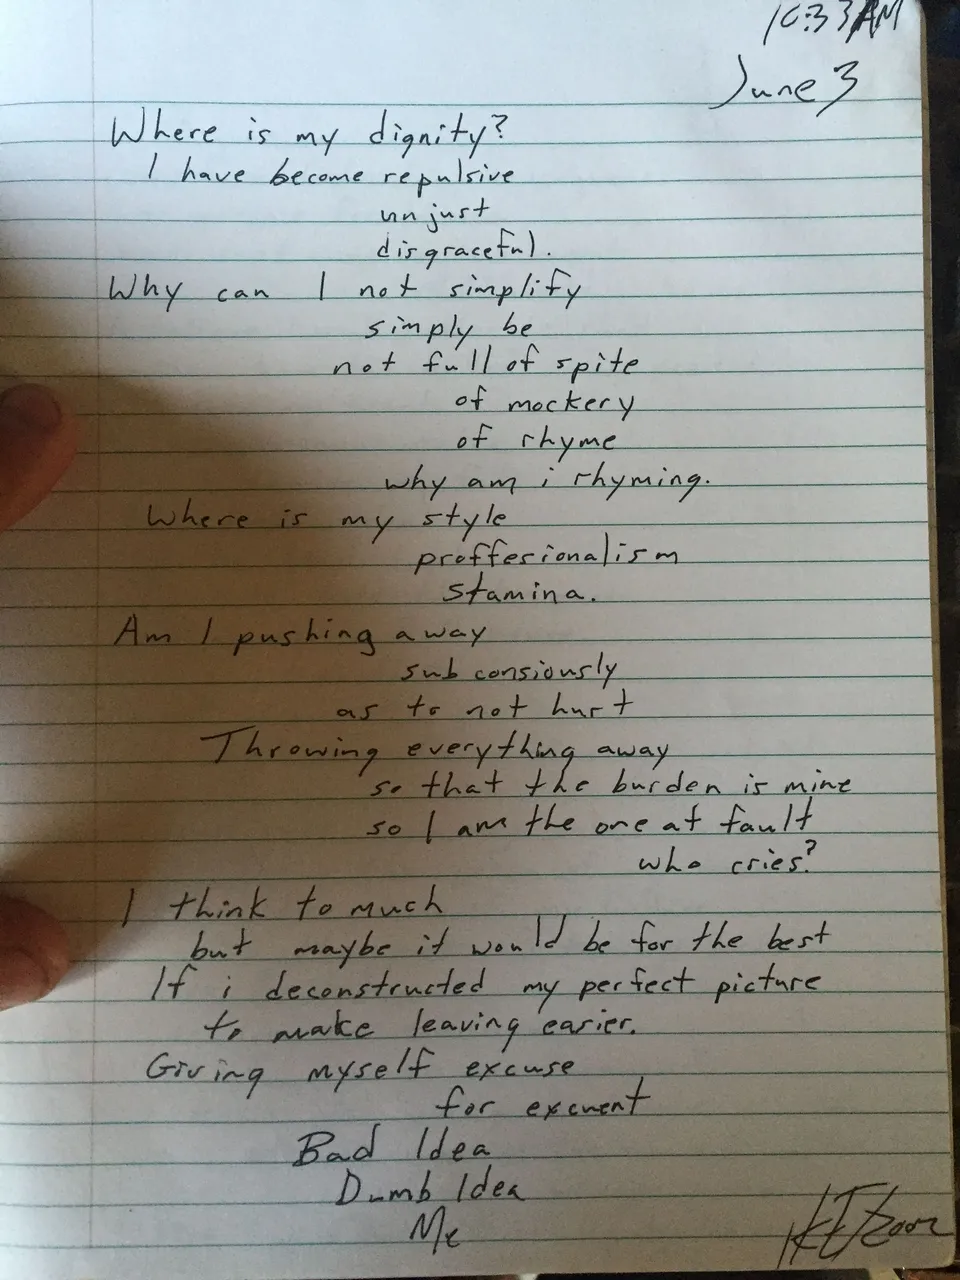 10:33AM
June 3
Where is my dignity?
I have become repulsive
unjust
disgraceful.
Why can I not simplify
simply be
not full of spite
of mockery
of rhyme
why am i rhyming.
Where is my style
proffesionalism
stamina.
Am I pushing away
sub consiously
as to not hurt
Throwing everything away
so that the burden is mine
so I am the one at fault
who cries?
I think to much
but maybe it would be for the best
If i deconstructed my perfect picture
to make leaving easier.
Giving myself excuse
for excuent
Bad Idea
Dumb Idea
Me